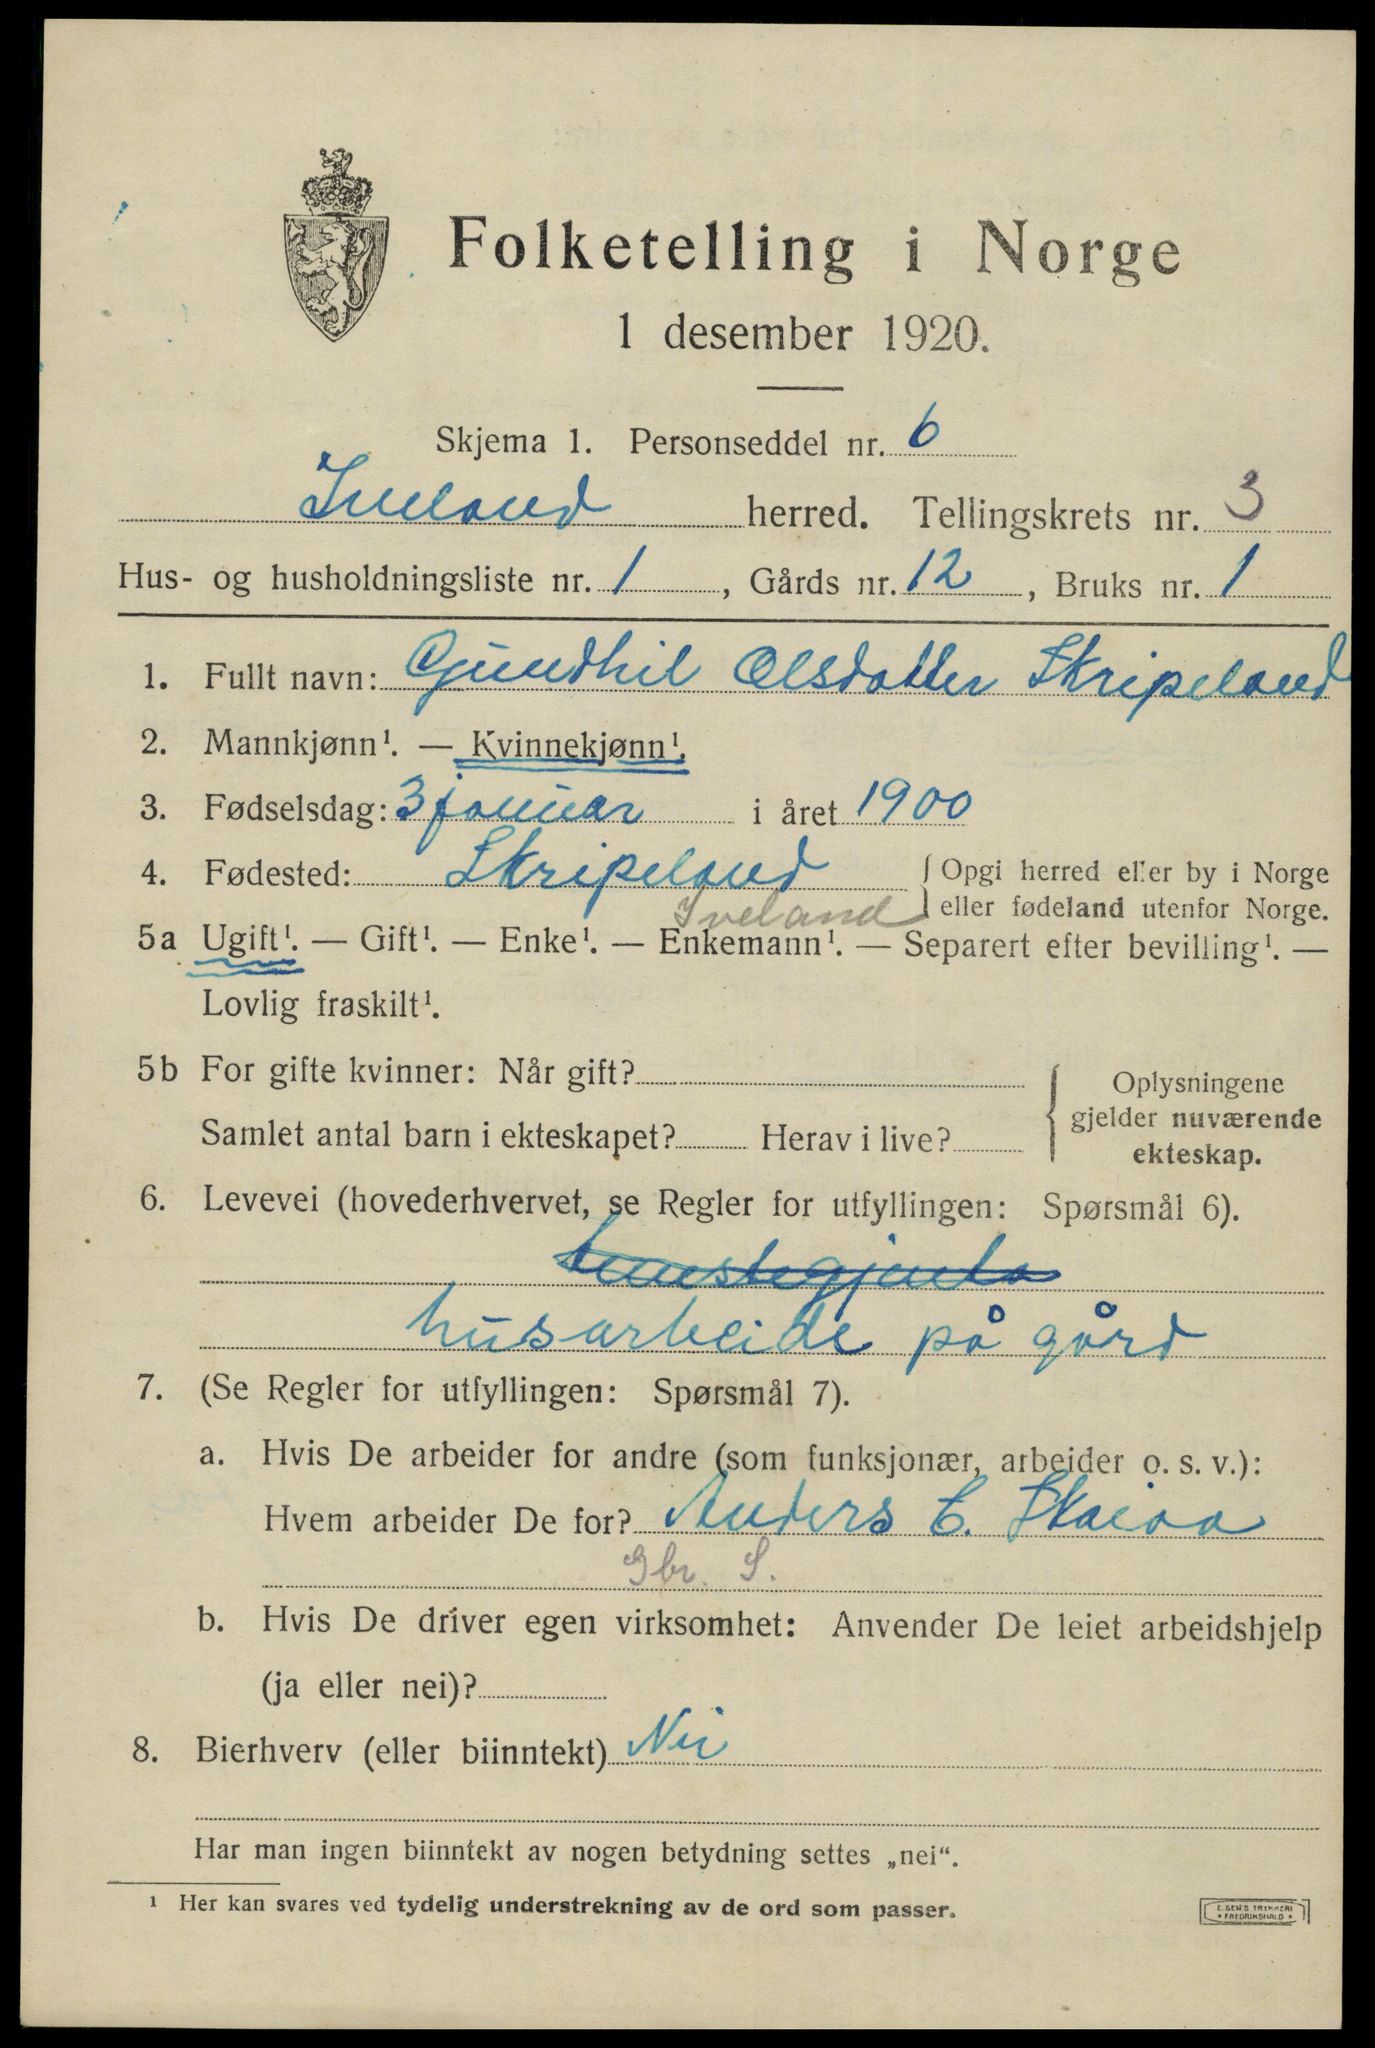 Folketelling i Norge
1 desember 1920.
Skjema 1. Personseddel nr. 6
Iveland herred. Tellingskrets nr. 3
Hus- og husholdningsliste nr. 1, Gårds nr. 12, Bruks nr. 1
1. Fullt navn: Gundhil Olsdatter Skripeland
2. Mannkjønn¹. — Kvinnekjønn¹.
3. Fødselsdag: 3 januar i året 1900
4. Fødested: Skripeland { Opgi herred eller by i Norge
Iveland eller fødeland utenfor Norge.
5a Ugift¹. — Gift¹. — Enke¹. — Enkemann¹. — Separert efter bevilling¹. —
Lovlig fraskilt¹.
5b For gifte kvinner: Når gift? { Oplysningene
gjelder nuværende
Samlet antal barn i ekteskapet? Herav i live?
ekteskap.
6. Levevei (hovederhvervet, se Regler for utfyllingen: Spørsmål 6).
tenestegjenta
husarbeide på gård
7. (Se Regler for utfyllingen: Spørsmål 7).
a. Hvis De arbeider for andre (som funksjonær, arbeider o. s. v.):
Hvem arbeider De for? Anders E. Skaiaa
Gbr. S.
b. Hvis De driver egen virksomhet: Anvender De leiet arbeidshjelp
(ja eller nei)?
8. Bierhverv (eller biinntekt) Nei
Har man ingen biinntekt av nogen betydning settes „nei“.
¹ Her kan svares ved tydelig understrekning av de ord som passer.
E. SEM'S TRYKKERI
* FREDRIKSHALD *